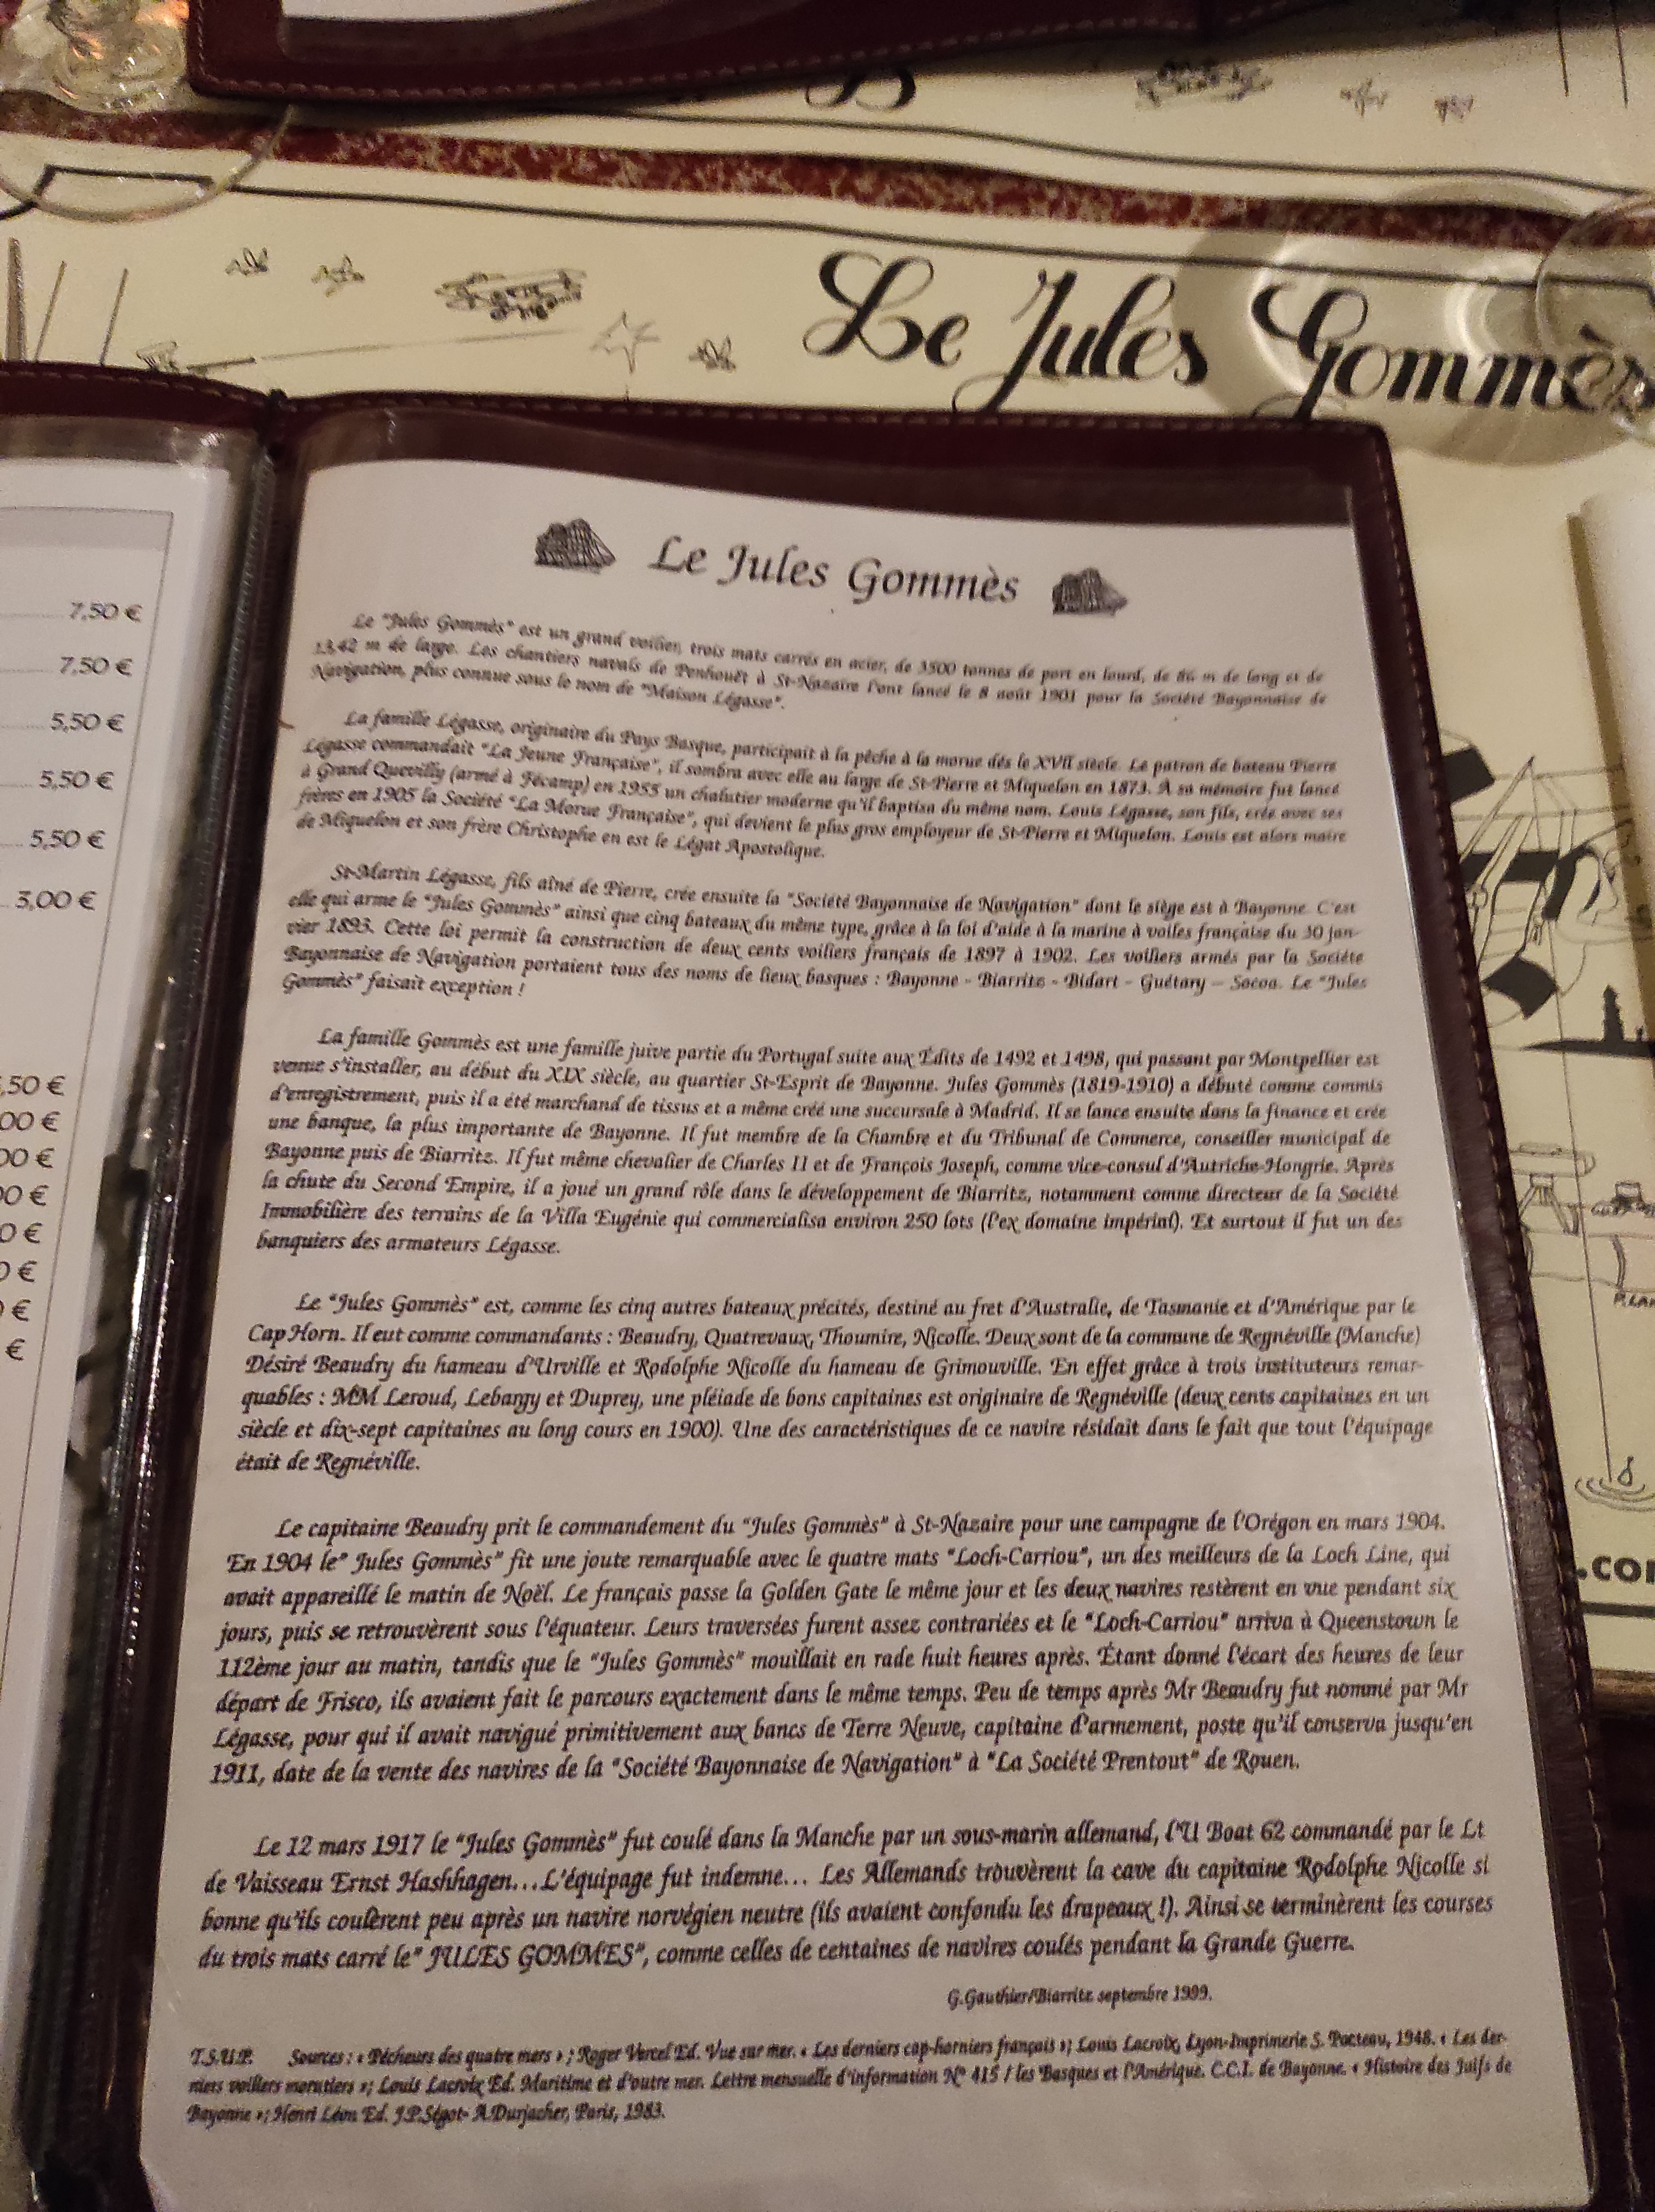 Le Jules Gommès
7,50 €
7,50 €
5,50 €
5,50 €
5,50 €
3,00 €
,50 €
00 €
00 €
00 €
0 €
0 €
€
€
Le Jules Gommès
Le "Jules Gommès" est un grand voilier, trois mats carrés en acier, de 3500 tonnes de port en lourd, de 86 m de long et de
13,42 m de large. Les chantiers navals de Penhouët à St-Nazaire l'ont lancé le 8 août 1901 pour la Société Bayonnaise de
Navigation, plus connue sous le nom de "Maison Légasse".
La famille Légasse, originaire du Pays Basque, participait à la pêche à la morue dés le XVII siècle. Le patron de bateau Pierre
Légasse commandait "La Jeune Française", il sombra avec elle au large de St-Pierre et Miquelon en 1873. À sa mémoire fut lancé
à Grand Quevilly (armé à Fécamp) en 1955 un chalutier moderne qu'il baptisa du même nom. Louis Légasse, son fils, crée avec ses
frères en 1905 la Société "La Morue Française", qui devient le plus gros employeur de St-Pierre et Miquelon. Louis est alors maire
de Miquelon et son frère Christophe en est le Légat Apostolique.
St-Martin Légasse, fils aîné de Pierre, crée ensuite la "Société Bayonnaise de Navigation" dont le siège est à Bayonne. C'est
elle qui arme le "Jules Gommès" ainsi que cinq bateaux du même type, grâce à la loi d'aide à la marine à voiles française du 30 jan-
vier 1893. Cette loi permit la construction de deux cents voiliers français de 1897 à 1902. Les voiliers armés par la Société
Bayonnaise de Navigation portaient tous des noms de lieux basques : Bayonne - Biarritz - Bidart - Guétary – Socoa. Le "Jules
Gommès" faisait exception !
La famille Gommès est une famille juive partie du Portugal suite aux Édits de 1492 et 1498, qui passant par Montpellier est
venue s'installer, au début du XIX siècle, au quartier St-Esprit de Bayonne. Jules Gommès (1819-1910) a débuté comme commis
d'enregistrement, puis il a été marchand de tissus et a même créé une succursale à Madrid. Il se lance ensuite dans la finance et crée
une banque, la plus importante de Bayonne. Il fut membre de la Chambre et du Tribunal de Commerce, conseiller municipal de
Bayonne puis de Biarritz. Il fut même chevalier de Charles II et de François Joseph, comme vice-consul d'Autriche-Hongrie. Après
la chute du Second Empire, il a joué un grand rôle dans le développement de Biarritz, notamment comme directeur de la Société
Immobilière des terrains de la Villa Eugénie qui commercialisa environ 250 lots (l'ex domaine impérial). Et surtout il fut un des
banquiers des armateurs Légasse.
Le "Jules Gommès" est, comme les cinq autres bateaux précités, destiné au fret d'Australie, de Tasmanie et d'Amérique par le
Cap Horn. Il eut comme commandants : Beaudry, Quatrevaux, Thoumire, Nicolle. Deux sont de la commune de Regnéville (Manche)
Désiré Beaudry du hameau d'Urville et Rodolphe Nicolle du hameau de Grimouville. En effet grâce à trois instituteurs remar-
quables : MM Leroud, Lebargy et Duprey, une pléiade de bons capitaines est originaire de Regnéville (deux cents capitaines en un
siècle et dix-sept capitaines au long cours en 1900). Une des caractéristiques de ce navire résidait dans le fait que tout l'équipage
était de Regnéville.
Le capitaine Beaudry prit le commandement du "Jules Gommès" à St-Nazaire pour une campagne de l'Orégon en mars 1904.
En 1904 le" Jules Gommès" fit une joute remarquable avec le quatre mats "Loch-Carriou", un des meilleurs de la Loch Line, qui
avait appareillé le matin de Noël. Le français passe la Golden Gate le même jour et les deux navires restèrent en vue pendant six
jours, puis se retrouvèrent sous l'équateur. Leurs traversées furent assez contrariées et le "Loch-Carriou" arriva à Queenstown le
112ème jour au matin, tandis que le "Jules Gommès" mouillait en rade huit heures après. Étant donné l'écart des heures de leur
départ de Frisco, ils avaient fait le parcours exactement dans le même temps. Peu de temps après Mr Beaudry fut nommé par Mr
Légasse, pour qui il avait navigué primitivement aux bancs de Terre Neuve, capitaine d'armement, poste qu'il conserva jusqu'en
1911, date de la vente des navires de la "Société Bayonnaise de Navigation" à "La Société Prentout" de Rouen.
Le 12 mars 1917 le "Jules Gommès" fut coulé dans la Manche par un sous-marin allemand, l'U Boat 62 commandé par le Lt
de Vaisseau Ernst Hashhagen...L'équipage fut indemne... Les Allemands trouvèrent la cave du capitaine Rodolphe Nicolle si
bonne qu'ils coulèrent peu après un navire norvégien neutre (ils avaient confondu les drapeaux !). Ainsi se terminèrent les courses
du trois mats carré le" JULES GOMMES", comme celles de centaines de navires coulés pendant la Grande Guerre.
G.Gauthier/Biarritz septembre 1999.
T.S.V.P. Sources : « Pécheurs des quatre mers » ; Roger Vercel Ed. Vue sur mer. « Les derniers cap-horniers français »; Louis Lacroix, Lyon-Imprimerie S. Pacteau, 1948. « Les der-
niers voiliers morutiers »; Louis Lacroix Ed. Maritime et d'outre mer. Lettre mensuelle d'information N° 415 / les Basques et l'Amérique. C.C.I. de Bayonne. « Histoire des Juifs de
Bayonne »; Henri Léon Ed. J.P.Ségot- A.Durjacher, Paris, 1983.